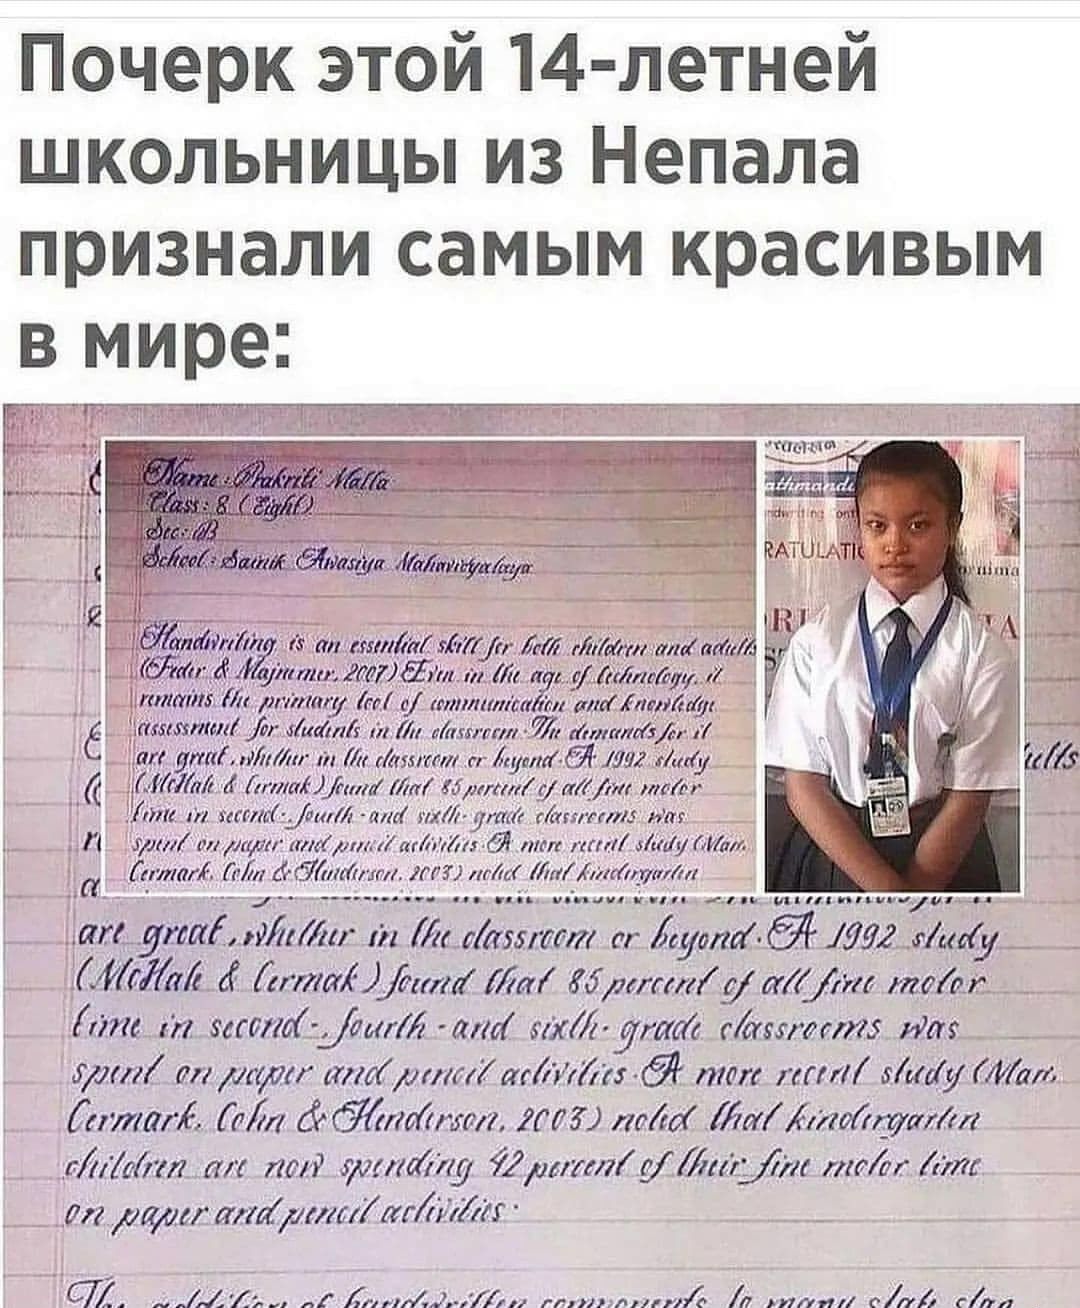 Почерк этой 14-летней
школьницы из Непала
признали самым красивым
в мире:
Name: Prakriti Malla
Class: 8 (Eight)
Sec: B
School: Sainik Awasiya Mahavidyalaya
Handwriting is an essential skill for both children and adults
(Feder & Majnemer, 2007) Even in the age of technology, it
remains the primary tool of communication and knowledge
assessment for students in the classroom. The demands for it
are great, whether in the classroom or beyond. A 1992 study
(McHale & Cermak) found that 85 percent of all fine motor
time in second-, fourth-and sixth-grade classrooms was
spent on paper and pencil activities. A more recent study (Marr,
Cermark, Cohn & Henderson, 2003) noted that kindergarten
RATULATI
ults
are great, whether in the classroom or beyond. A 1992 study
(McHale & Cermak) found that 85 percent of all fine motor
time in second-, fourth-and sixth-grade classrooms was
spent on paper and pencil activities. A more recent study (Marr,
Cermark, Cohn & Henderson, 2003) noted that kindergarten
children are now spending 42 percent of their fine motor time
on paper and pencil activities.
The addition of handwritten components to many state